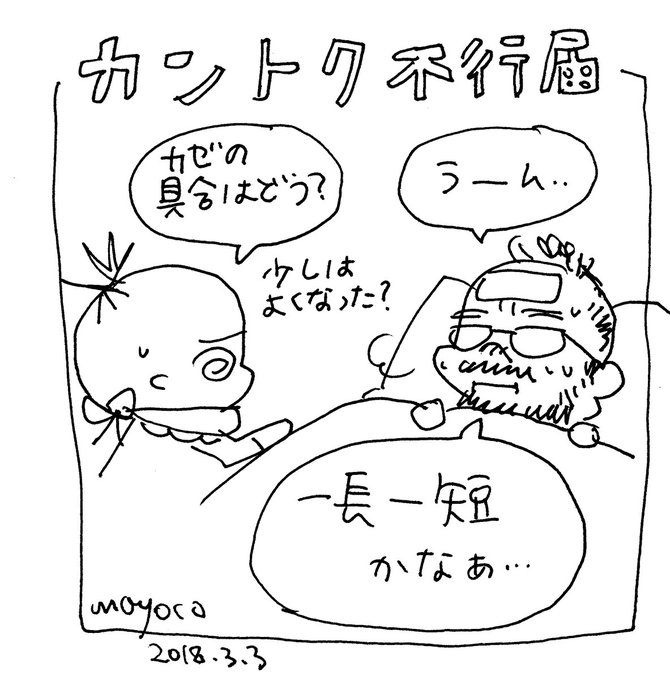 カントク不行届
カゼの
具合はどう?
少しは
よくなった?
うーん‥
一長一短
かなぁ…
moyoco
2018.3.3